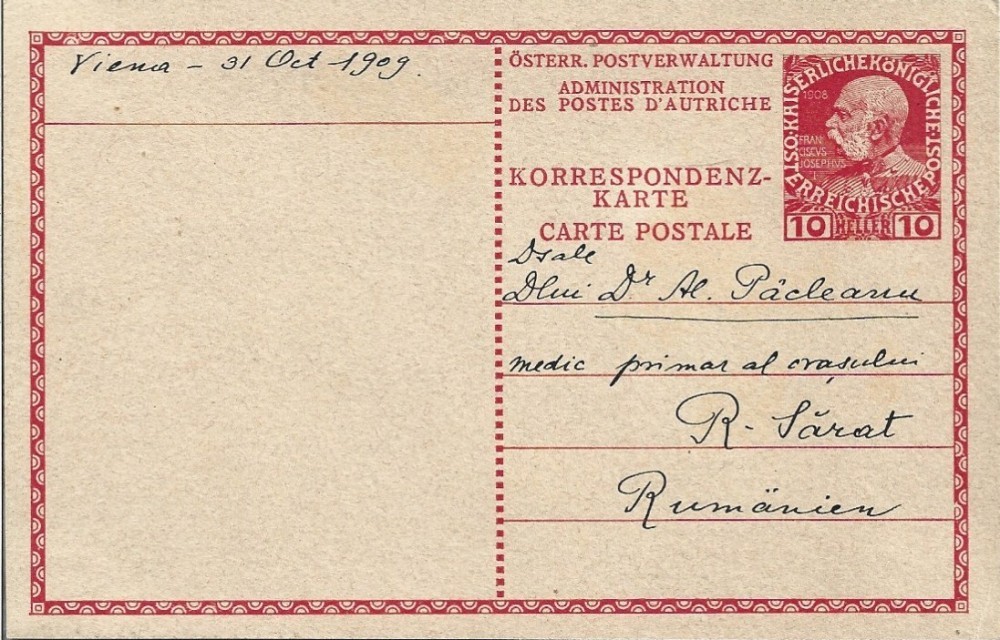 Viena - 31 Oct 1909.
ÖSTERR. POSTVERWALTUNG
ADMINISTRATION
DES POSTES D'AUTRICHE
KAISERLICHEKÖNIGLICHE·ÖSTERREICHISCHE POST·
1908
FRAN
CISCVS
IOSEPHVS
I
10 HELLER 10
KORRESPONDENZ-
KARTE
CARTE POSTALE
Dsale
Dlui Dr Al. Pâcleanu
medic primar al orașului
R-Sărat
Rumänien